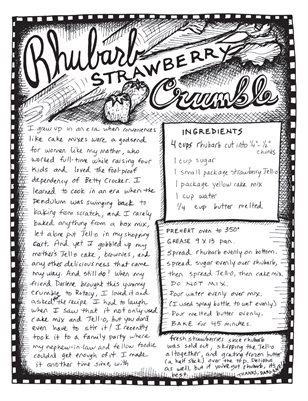 Rhubarb
STRAWBERRY
Crumble
I grew up in an era when conveniences
like cake mixes were a godsend
for women like my mother, who
worked full-time while raising four
kids and loved the foolproof
dependency of Betty Crocker. I
learned to cook in an era when the
pendulum was swinging back to
baking from scratch, and I rarely
baked anything from a box mix,
let alone put Jello in my shopping
cart. And yet I gobbled up my
mother's Jello cake, brownies, and
any other deliciousness that came
my way. And still do! When my
friend Darlene brought this yummy
crumble to Rotary, I loved it and
asked the recipe. I had to laugh
when I saw that it not only used
cake mix and Jello, but you don't
even have to stir it! I recently
took it to a family party where
my nephew-in-law and fellow foodie
couldn't get enough of it. I made
it another time since, with
INGREDIENTS
4 cups rhubarb cut into 1/4"-1/2"
chunks
1 cup sugar
1 small package strawberry Jello
1 package yellow cake mix
1 cup water
1/4 cup butter melted
PREHEAT oven to 350°
GREASE 9 x 13 pan.
Spread rhubarb evenly on bottom.
Spread sugar evenly over rhubarb,
then spread Jello, then cake mix.
DO NOT MIX.
Pour water evenly over mix.
(I used spray bottle to wet evenly)
Pour melted butter evenly.
BAKE for 45 minutes.
fresh strawberries since rhubarb
was sold out, skipping the Jello
altogether, and grating frozen butter
(a half stick) over the top. Delicious
as well, but if you've got rhubarb, it's
best.